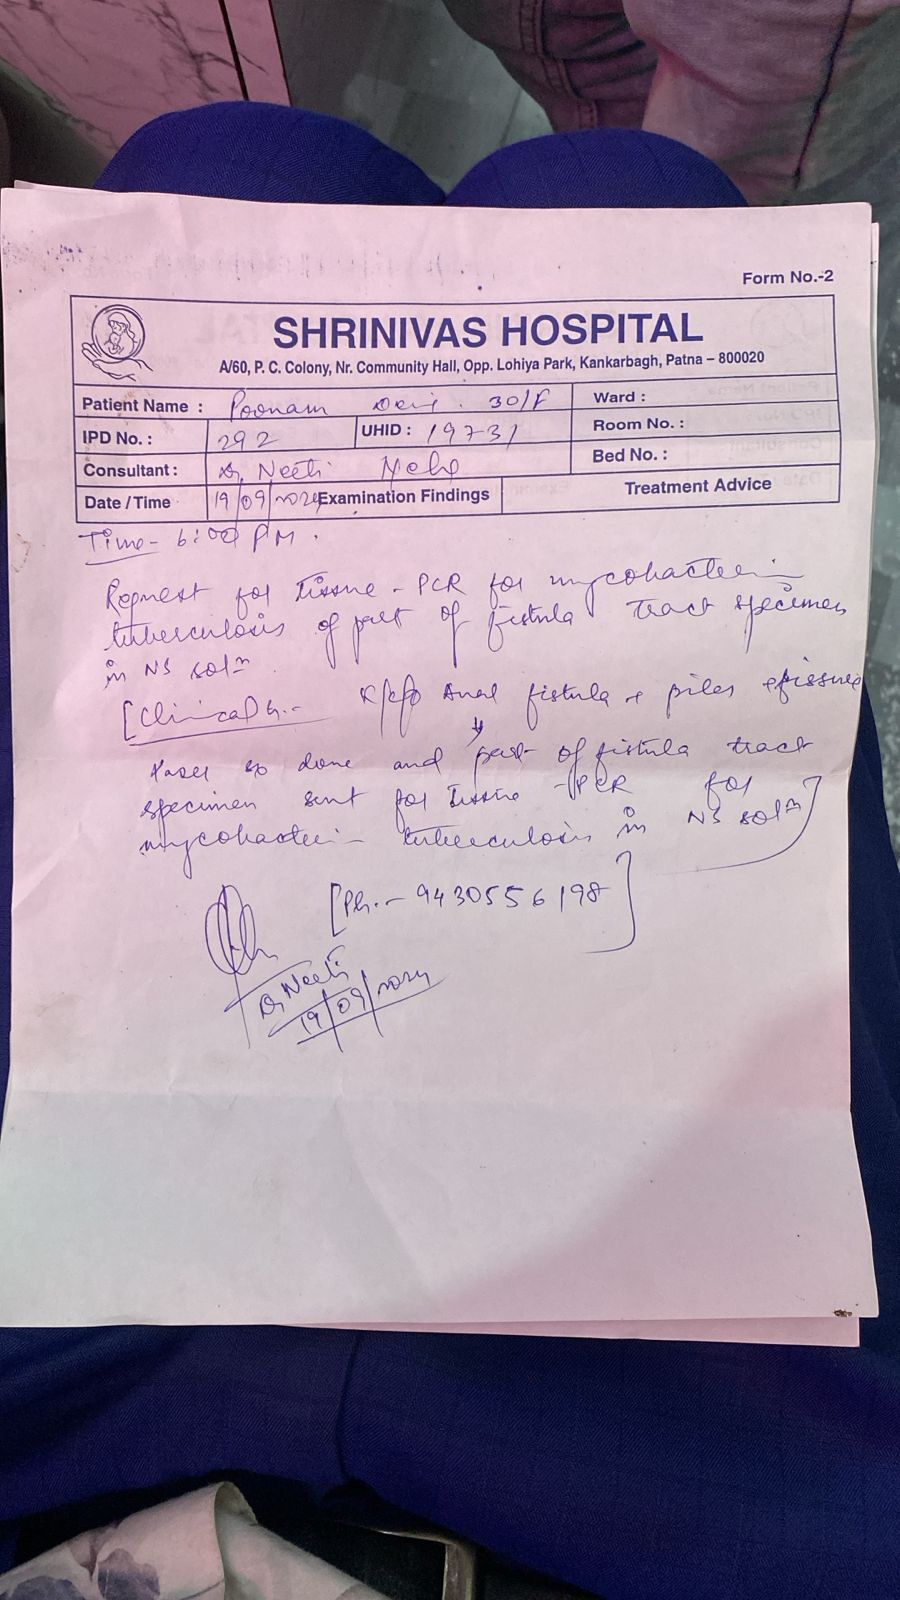 Form No.-2
SHRINIVAS HOSPITAL
A/60, P. C. Colony, Nr. Community Hall, Opp. Lohiya Park, Kankarbagh, Patna – 800020
Patient Name : Poonam Devi . 30/F
Ward :
IPD No. : 292
UHID : 19731
Room No. :
Consultant : Dr. Neeti
Bed No. :
Date / Time 19/09/2024 Examination Findings
Treatment Advice
Time- 6:00 PM.
Request for Tissue - PCR for mycobacteri-
tuberculosis of part of fistula tract specimen
in NS solⁿ.
[Clinical h:- K/c/o Anal fistula c piles c fissure
laser done and part of fistula tract
specimen sent for Tissue - PCR for
mycobacteri- tuberculosis in NS solⁿ]
[Ph.:- 9430556198]
Dr Neeti
19/09/2024